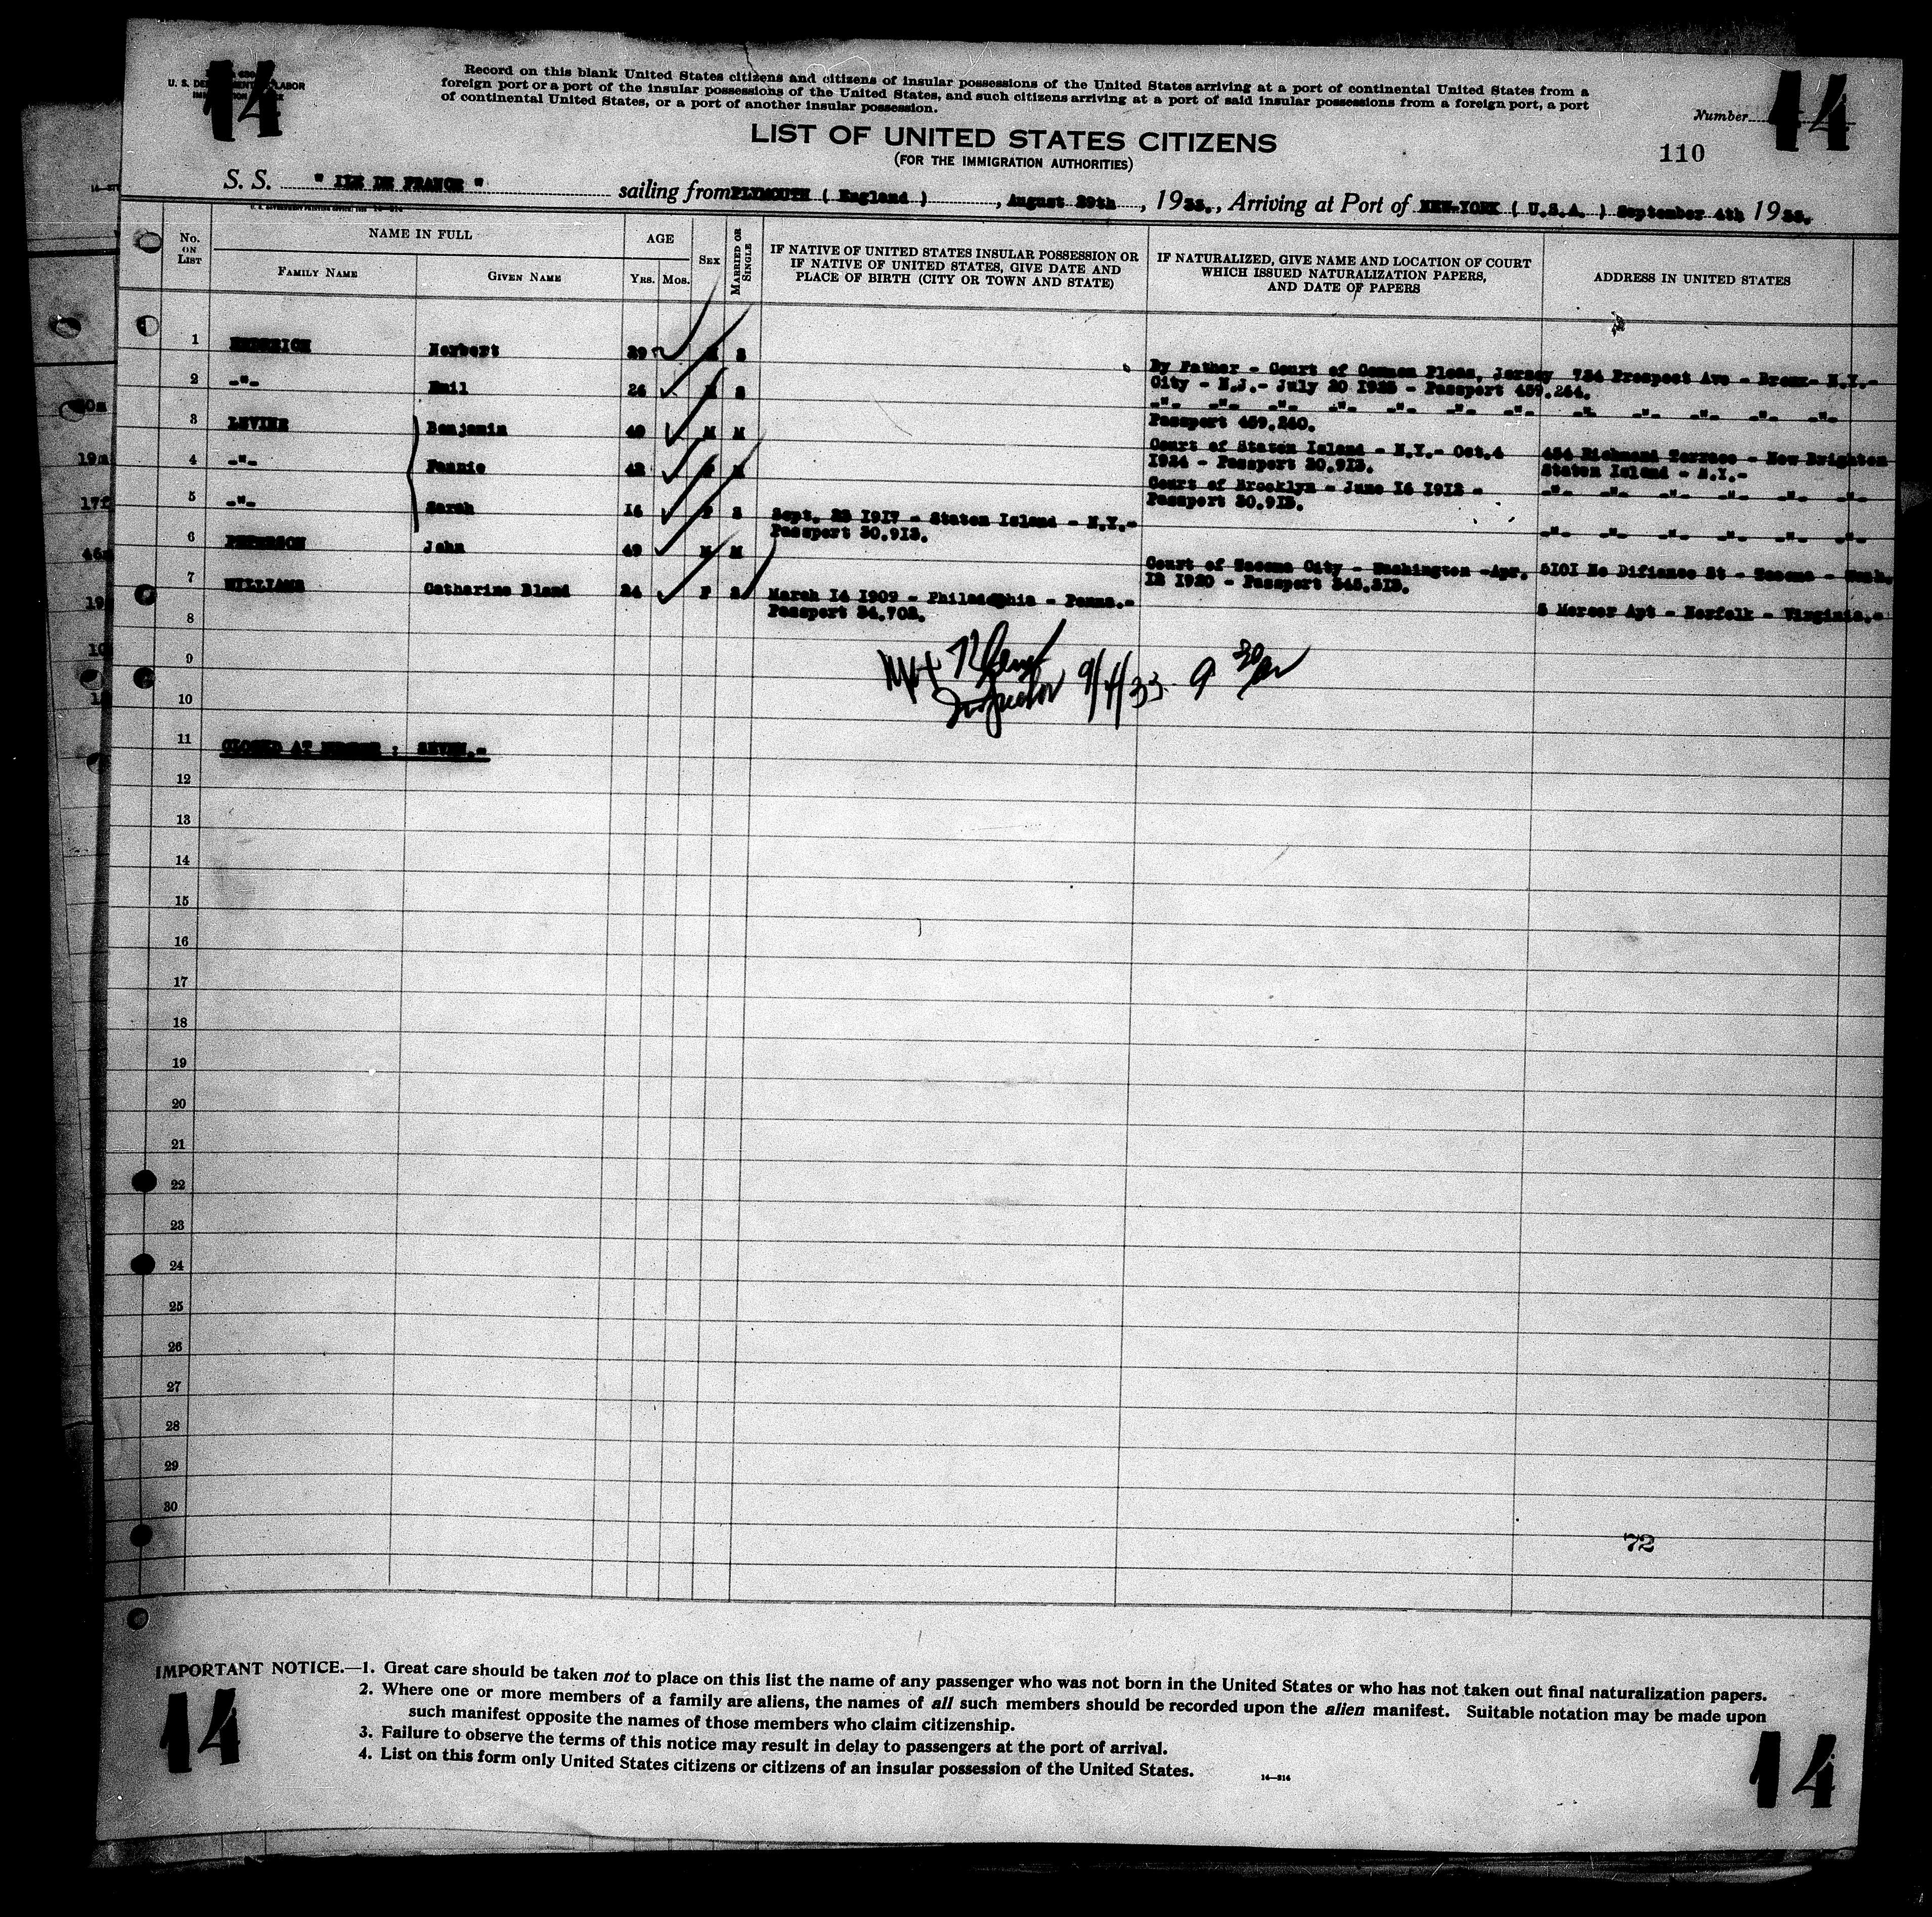 14
U. S. DEPARTMENT OF LABOR
Record on this blank United States citizens and citizens of insular possessions of the United States arriving at a port of continental United States from a
foreign port or a port of the insular possessions of the United States, and such citizens arriving at a port of said insular possessions from a foreign port, a port
of continental United States, or a port of another insular possession.
Number 14
LIST OF UNITED STATES CITIZENS
(FOR THE IMMIGRATION AUTHORITIES)
110
S. S. " ILE DE FRANCE " sailing from PLYMOUTH ( England ), August 29th, 1933., Arriving at Port of NEW-YORK ( U.S.A. ) September 4th 1933.
No. ON LIST
NAME IN FULL
FAMILY NAME
GIVEN NAME
AGE
YRS. MOS.
SEX
MARRIED OR SINGLE
IF NATIVE OF UNITED STATES INSULAR POSSESSION OR
IF NATIVE OF UNITED STATES, GIVE DATE AND
PLACE OF BIRTH (CITY OR TOWN AND STATE)
IF NATURALIZED, GIVE NAME AND LOCATION OF COURT
WHICH ISSUED NATURALIZATION PAPERS,
AND DATE OF PAPERS
ADDRESS IN UNITED STATES
1 Herbert 29 M S
By Father - Court of Common Pleas, Jersey 734 Prospect Ave - Bronx- N.Y.-
City - N.J.- July 20 1925 - Passport 459.264.
2 -"- Emil 26 M S
-"- -"- -"- -"- -"- -"- -"- -"- -"- -"- -"- -"-
Passport 459.260.
3 LEVINE Benjamin 49 M M
Court of Staten Island - N.Y.- Oct.4 454 Richmond Terrace - New Brighton
1924 - Passport 30.913. Staten Island - N.Y.-
4 -"- Fannie 42 F M
Court of Brooklyn - June 16 1912 - -"- -"- -"- -"- -"- -"-
Passport 30.913.
5 -"- Sarah 16 F S
Sept. 23 1917 - Staten Island - N.Y.- -"- -"- -"- -"- -"- -"-
Passport 30.913.
6 PETERSON John 49 M M
Court of Tacoma City - Washington -Apr. 5101 No Difiance St - Tacoma - Wash.
12 1920 - Passport 345.513.
7 WILLIAMS Catharine Bland 24 F S
March 14 1909 - Philadelphia - Penna.- 5 Mercer Apt - Norfolk - Virginia.-
Passport 34.702.
8
9
Inspector 9/4/33 9 30
10
11
CLOSED AT NUMBER : SEVEN.-
12
13
14
15
16
17
18
19
20
21
22
23
24
25
26
27
28
29
30
72
IMPORTANT NOTICE.—1. Great care should be taken not to place on this list the name of any passenger who was not born in the United States or who has not taken out final naturalization papers.
2. Where one or more members of a family are aliens, the names of all such members should be recorded upon the alien manifest. Suitable notation may be made upon
such manifest opposite the names of those members who claim citizenship.
3. Failure to observe the terms of this notice may result in delay to passengers at the port of arrival.
4. List on this form only United States citizens or citizens of an insular possession of the United States.
14
14